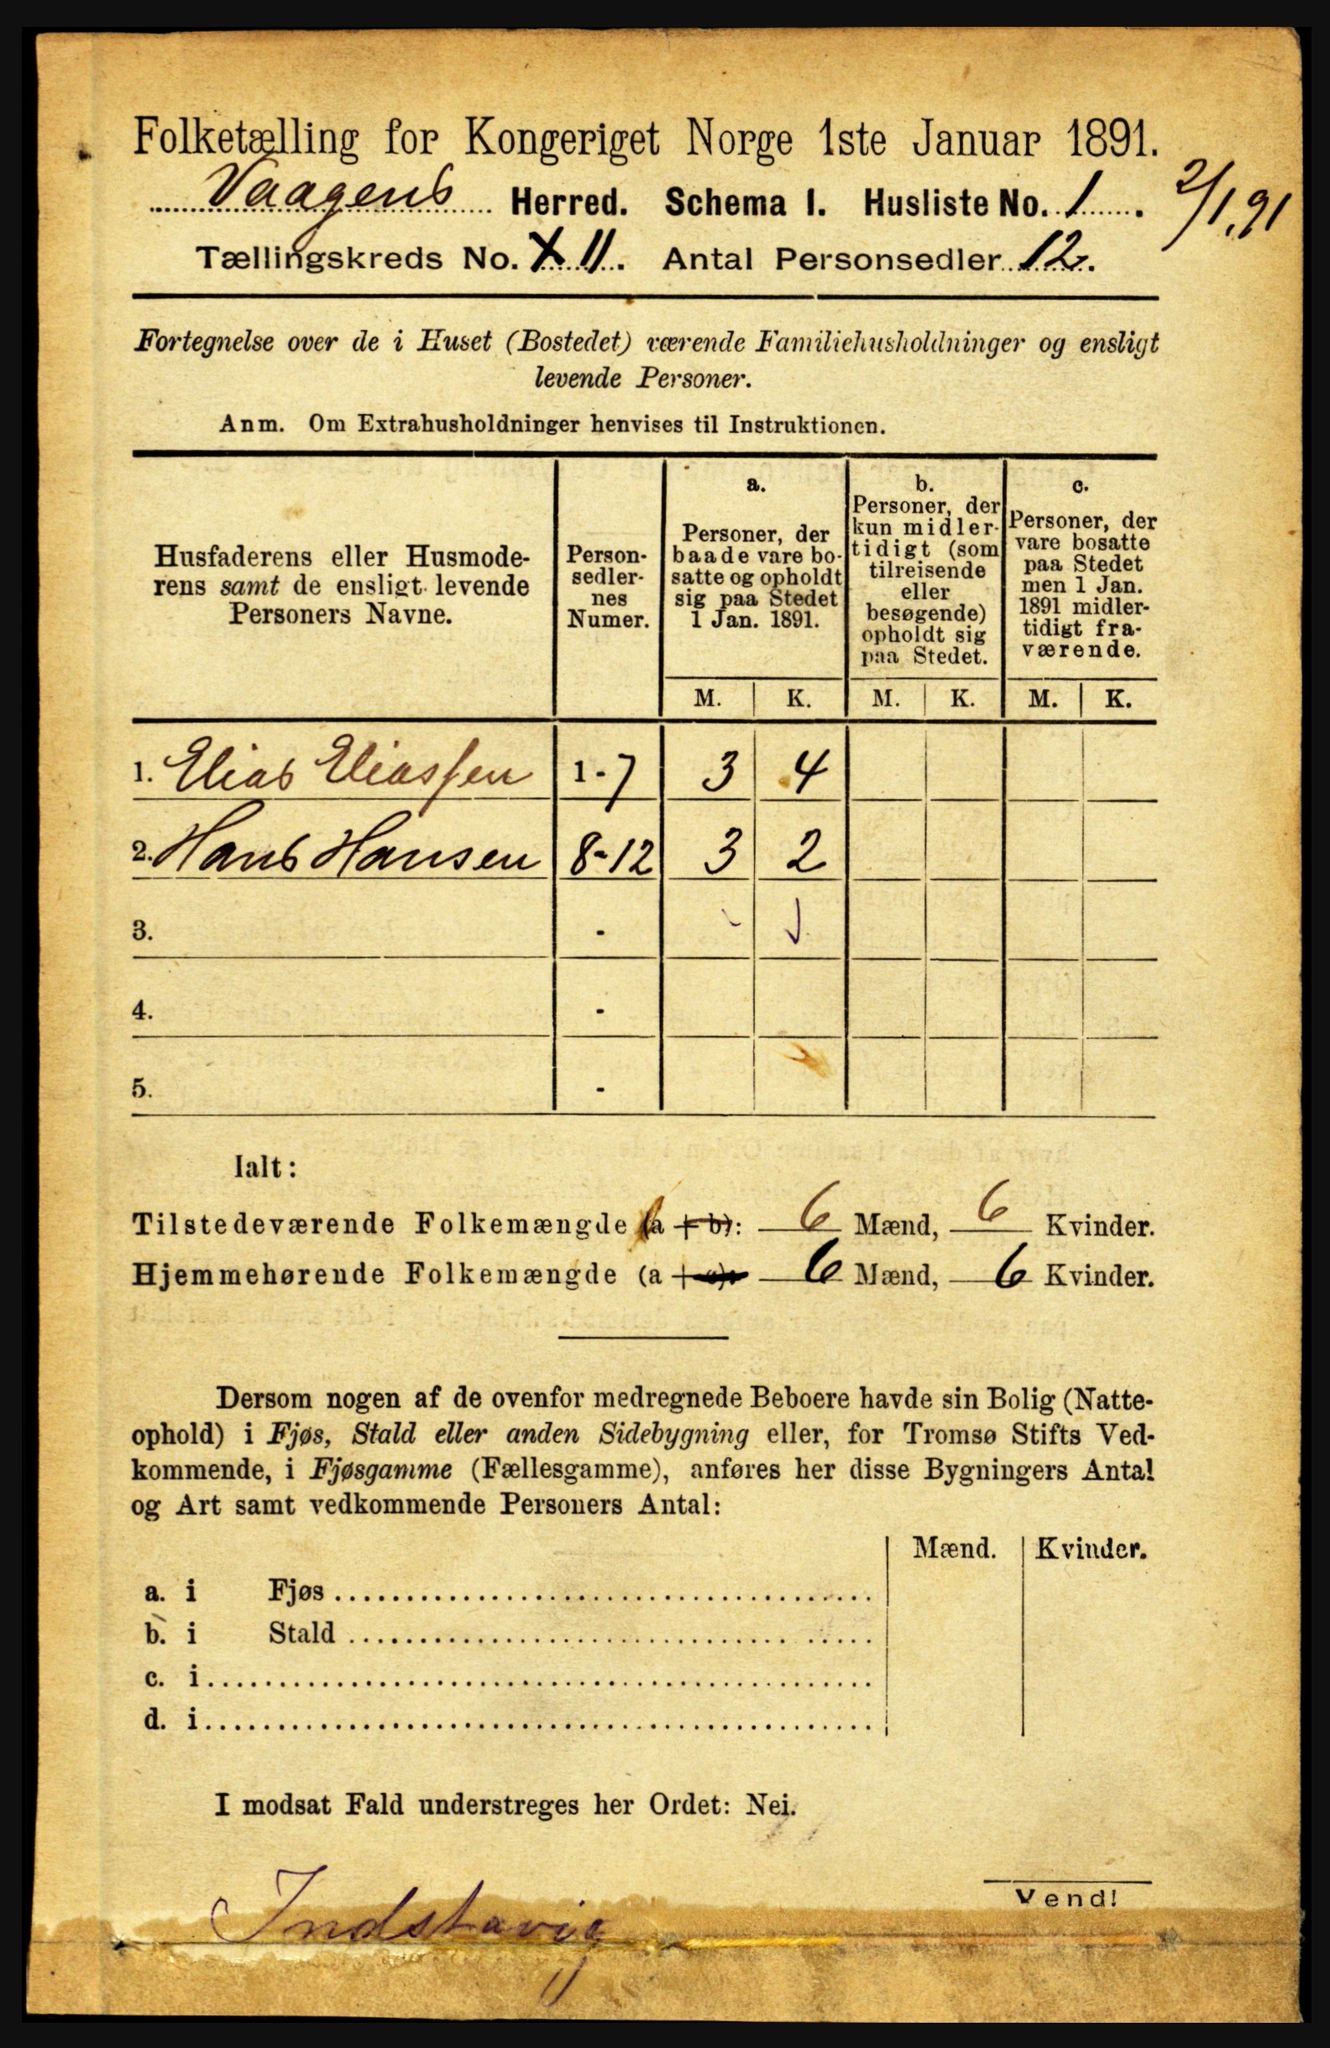 Folketælling for Kongeriget Norge 1ste Januar 1891.
Vaagens Herred. Schema I. Husliste No. 1. 2/1.91
Tællingskreds No. X 11. Antal Personsedler 12.
Fortegnelse over de i Huset (Bostedet) værende Familiehusholdninger og ensligt
levende Personer.
Anm. Om Extrahusholdninger henvises til Instruktionen.
Husfaderens eller Husmode-
rens samt de ensligt levende
Personers Navne.
Person-
sedler-
nes
Numer.
a.
Personer, der
baade vare bo-
satte og opholdt
sig paa Stedet
1 Jan. 1891.
b.
Personer, der
kun midler-
tidigt (som
tilreisende
eller
besøgende)
opholdt sig
paa Stedet.
c.
Personer, der
vare bosatte
paa Stedet
men 1 Jan.
1891 midler-
tidigt fra-
værende.
M. K. M. K. M. K.
1. Elias Eliassen 1-7 3 4
2. Hans Hansen 8-12 3 2
3. -
4. -
5. -
Ialt:
Tilstedeværende Folkemængde (a + b): 6 Mænd, 6 Kvinder.
Hjemmehørende Folkemængde (a + c): 6 Mænd, 6 Kvinder.
Dersom nogen af de ovenfor medregnede Beboere havde sin Bolig (Natte-
ophold) i Fjøs, Stald eller anden Sidebygning eller, for Tromsø Stifts Ved-
kommende, i Fjøsgamme (Fællesgamme), anføres her disse Bygningers Antal
og Art samt vedkommende Personers Antal:
Mænd. Kvinder.
a. i Fjøs
b. i Stald
c. i
d. i
I modsat Fald understreges her Ordet: Nei.
Vend!
Indstavig